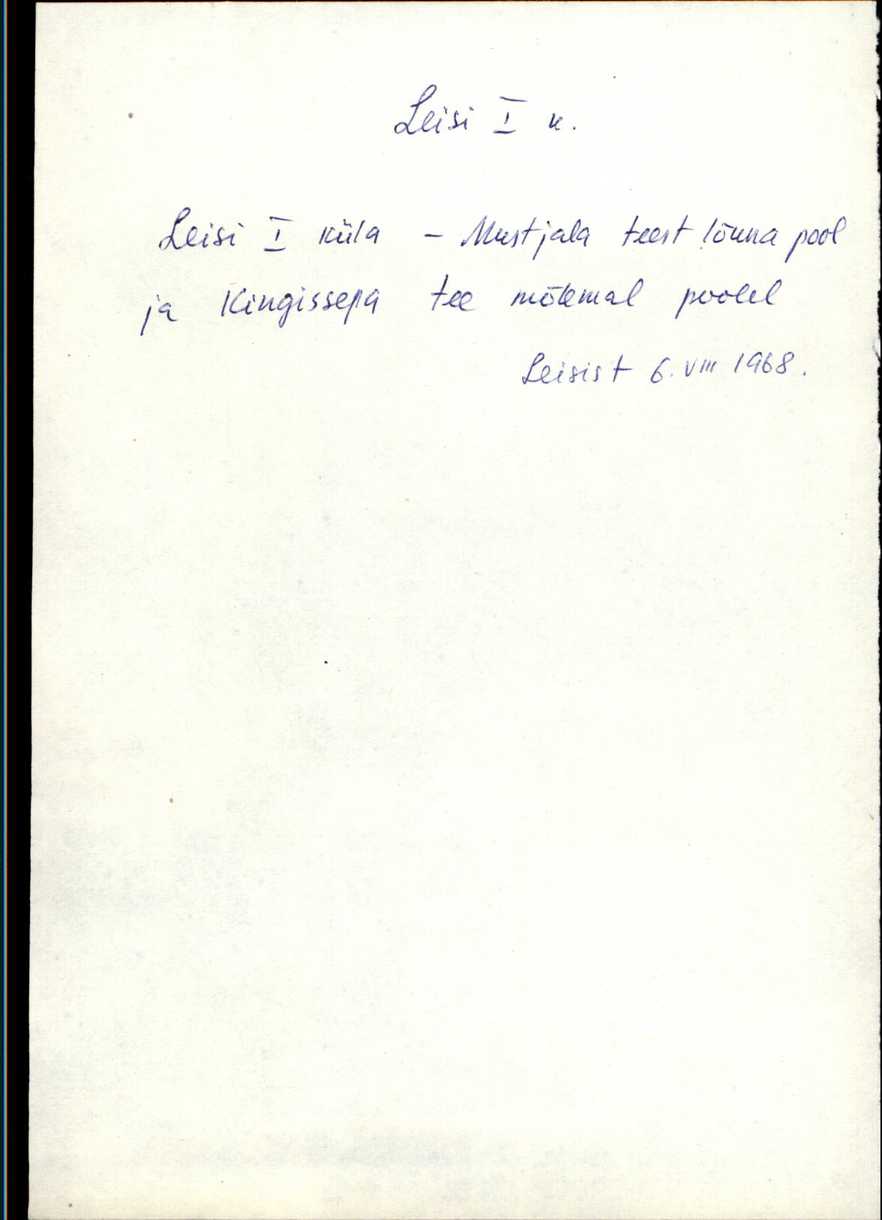 Leisi I k.
Leisi I küla - Mustjala teest lõuna pool
ja Kingissepa tee mõlemal poolel
Leisist 6. VIII 1968.